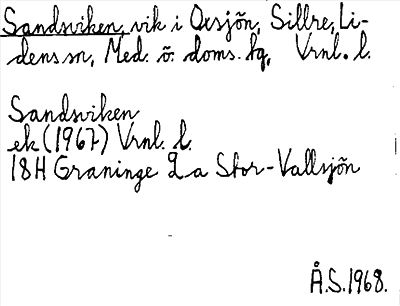 Sandsviken, vik i Oxsjön, Sillre, Li-
dens sn, Med. ö. doms. hg, Vrnl. l.
Sandsviken
ek (1967) Vrnl. l.
18H Graninge 2 a Stor-Vallsjön
Å.S. 1968.